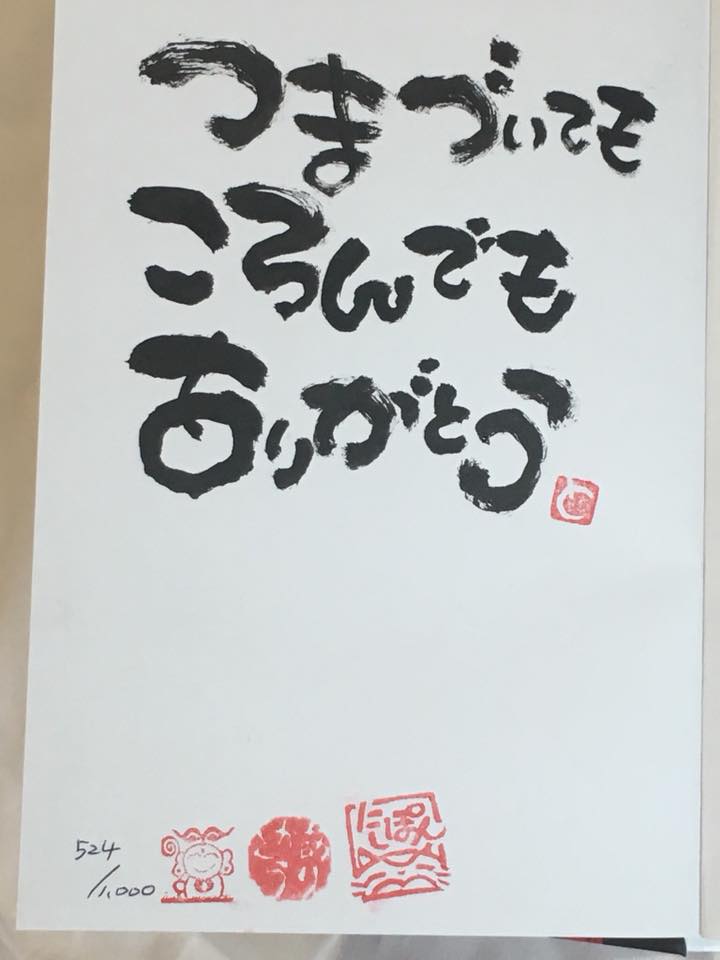 つまづいても
ころんでも
ありがとう
524
/1,000
にっぽん